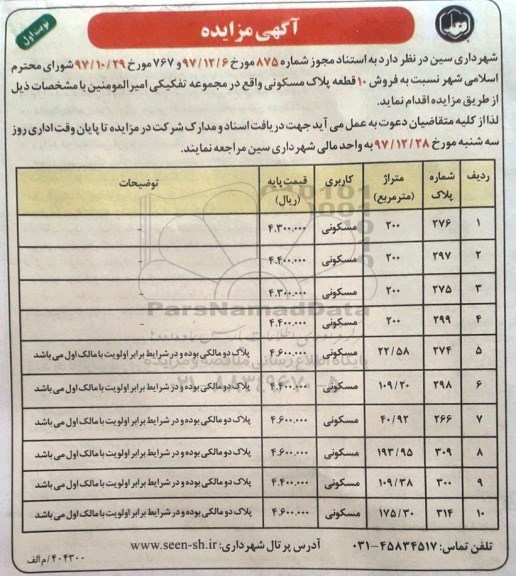 آگهی مزایده
نوبت اول
شهرداری سین در نظر دارد به استناد مجوز شماره ۸۷۵ مورخ ۹۷/۱۲/۶ و ۷۶۷ مورخ ۹۷/۱۰/۲۹ شورای محترم
اسلامی شهر نسبت به فروش ۱۰ قطعه پلاک مسکونی واقع در مجموعه تفکیکی امیرالمومنین با مشخصات ذیل
از طریق مزایده اقدام نماید.
لذا از کلیه متقاضیان دعوت به عمل می آید جهت دریافت اسناد و مدارک شرکت در مزایده تا پایان وقت اداری روز
سه شنبه مورخ ۹۷/۱۲/۲۸ به واحد مالی شهرداری سین مراجعه نمایند.
ردیف شماره پلاک متراژ (مترمربع) کاربری قیمت پایه (ریال) توضیحات
۱ ۲۷۶ ۲۰۰ مسکونی ۴.۳۰۰.۰۰۰ -
۲ ۲۹۷ ۲۰۰ مسکونی ۴.۴۰۰.۰۰۰ -
۳ ۲۷۵ ۲۰۰ مسکونی ۴.۳۰۰.۰۰۰ -
۴ ۲۹۹ ۲۰۰ مسکونی ۴.۴۰۰.۰۰۰ -
۵ ۲۷۴ ۲۲/۵۸ مسکونی ۴.۶۰۰.۰۰۰ پلاک دو مالکی بوده و در شرایط برابر اولویت با مالک اول می باشد
۶ ۲۹۸ ۱۰۹/۲۰ مسکونی ۴.۴۰۰.۰۰۰ پلاک دو مالکی بوده و در شرایط برابر اولویت با مالک اول می باشد
۷ ۲۶۶ ۴۰/۹۲ مسکونی ۴.۶۰۰.۰۰۰ پلاک دو مالکی بوده و در شرایط برابر اولویت با مالک اول می باشد
۸ ۳۰۹ ۱۹۳/۹۵ مسکونی ۴.۶۰۰.۰۰۰ پلاک دو مالکی بوده و در شرایط برابر اولویت با مالک اول می باشد
۹ ۳۰۰ ۱۰۹/۳۸ مسکونی ۴.۴۰۰.۰۰۰ پلاک دو مالکی بوده و در شرایط برابر اولویت با مالک اول می باشد
۱۰ ۳۱۴ ۱۷۵/۳۰ مسکونی ۴.۶۰۰.۰۰۰ پلاک دو مالکی بوده و در شرایط برابر اولویت با مالک اول می باشد
ParsNamadData
پایگاه اطلاع رسانی مناقصه و مزایده
تلفن تماس: ۴۵۸۳۴۵۱۷-۰۳۱ آدرس پرتال شهرداری: www.seen-sh.ir
۴۰۴۳۰۰/م الف